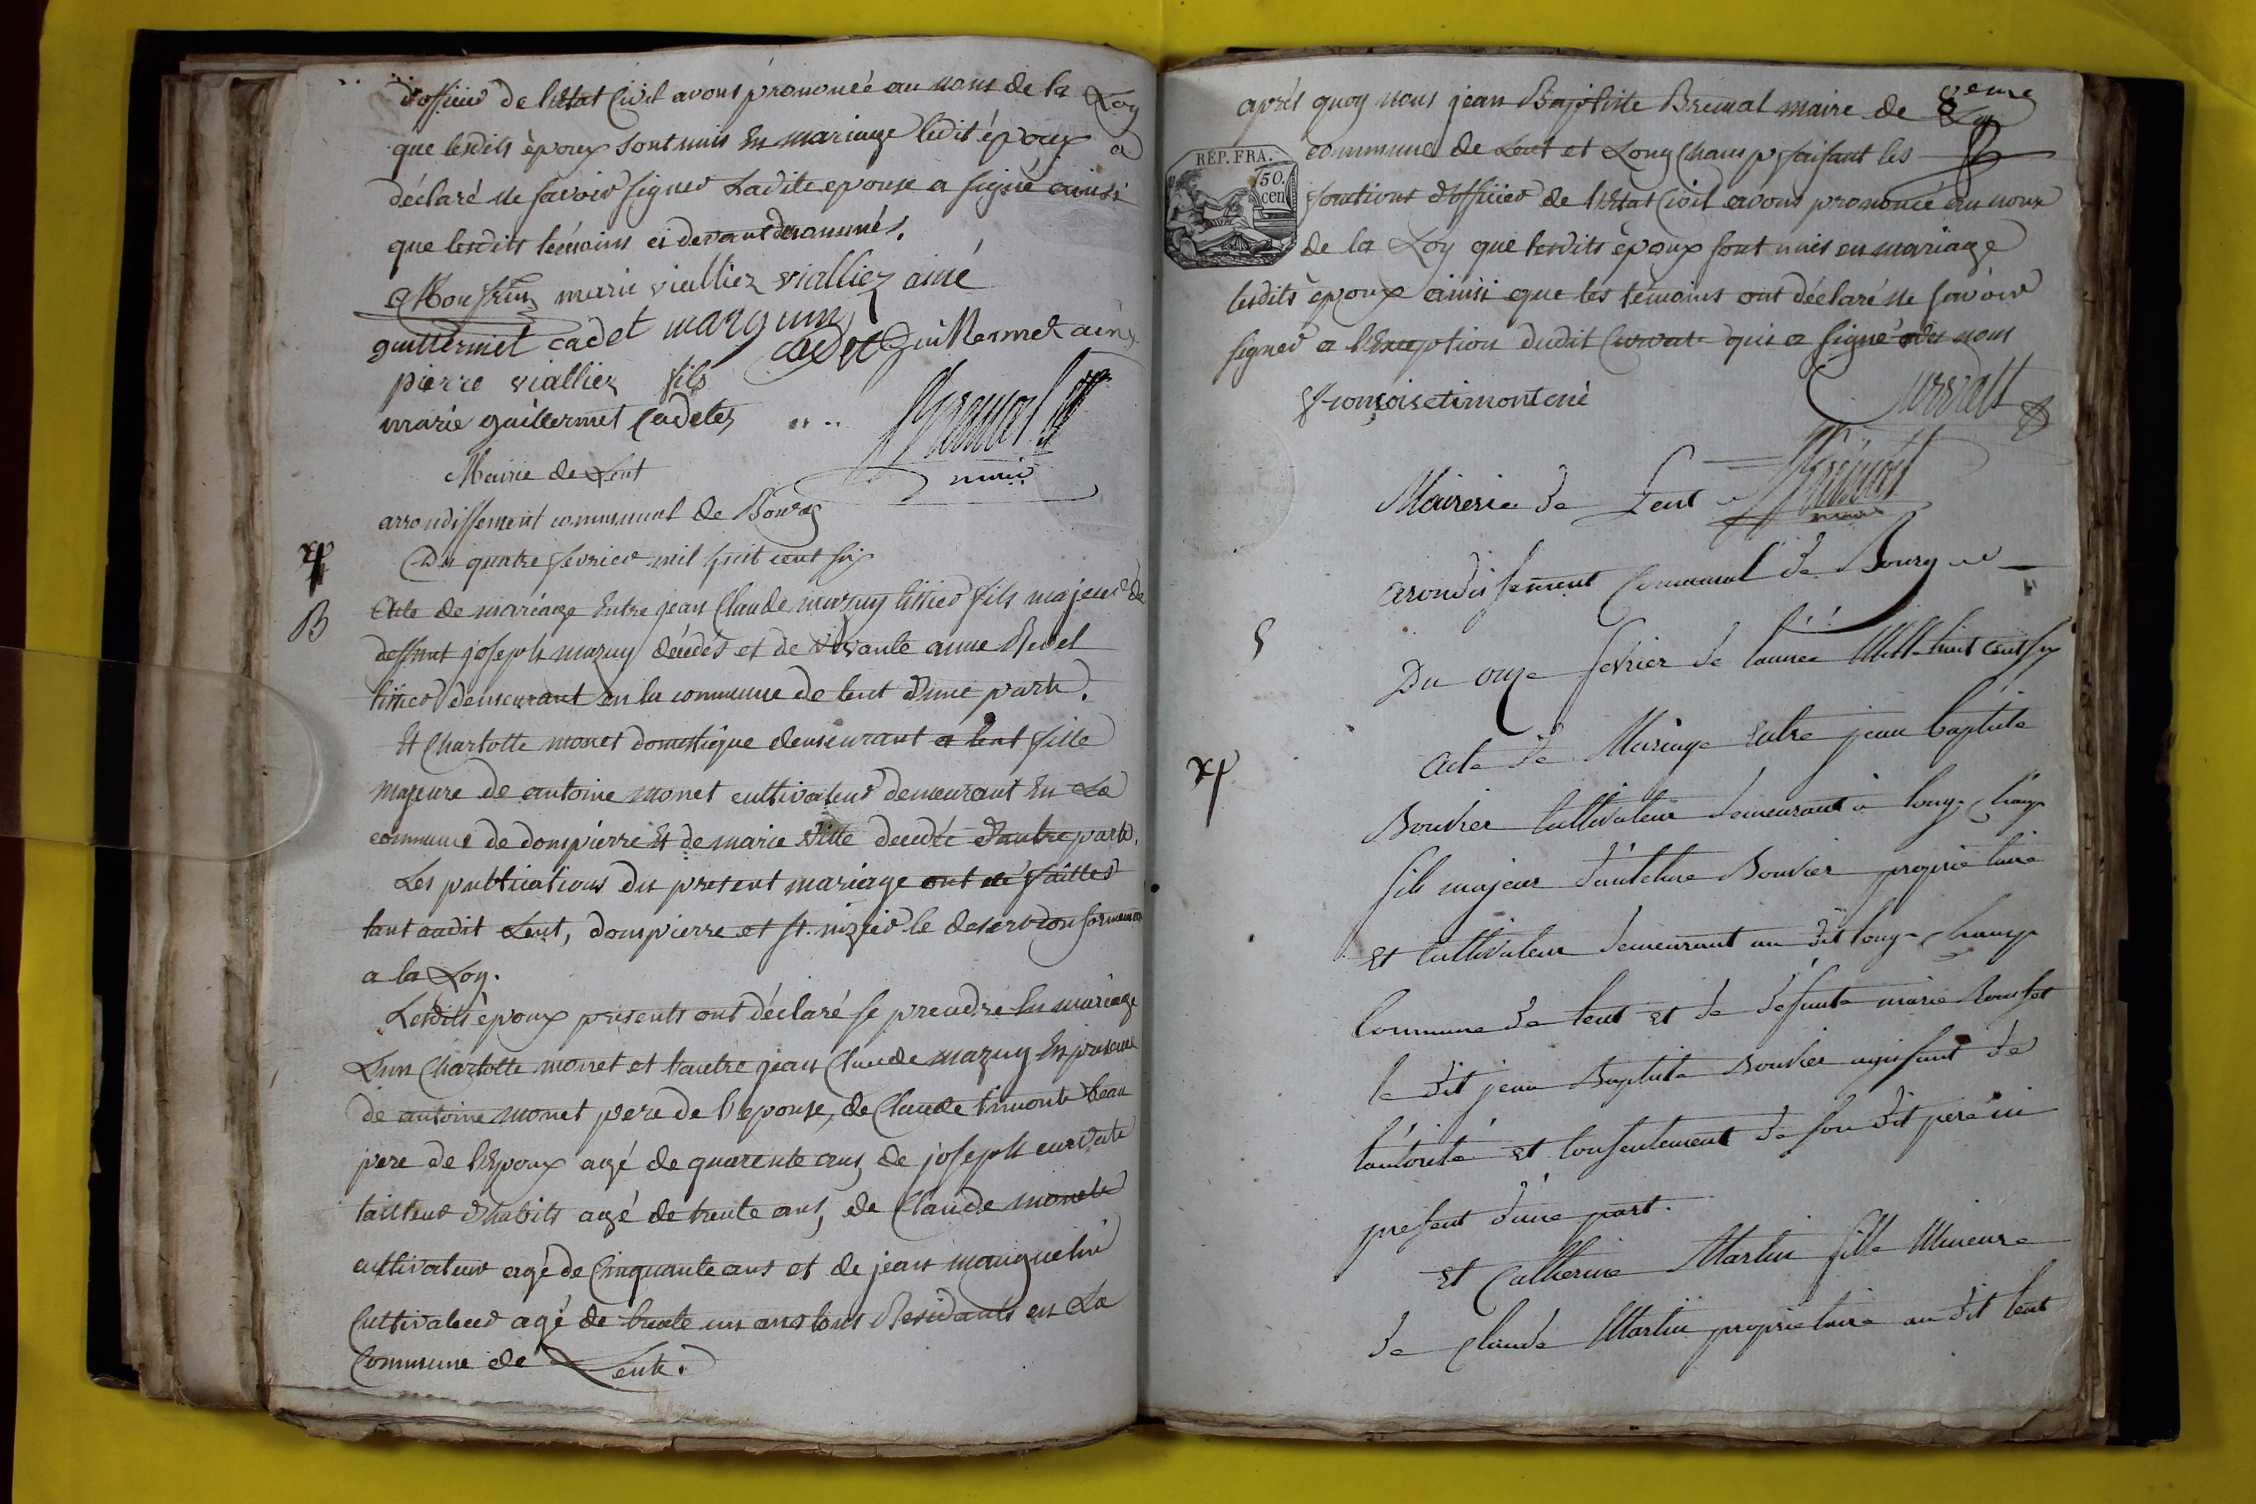 d'officier de l'Etat Civil avons prononcé au nom de la Loy
que lesdits époux sont unis En mariage ledit époux a
déclaré ne savoir signer Ladite epouse a signé ainsi
que lesdits témoins ci devant dénommés.
marie vialliez vialliez ainé
guillermet cadet
cadet Guillermet ainé
pierre viallier fils
marie guillermet Cadetes
Bremal
maire
Mairie de Lent
arrondissement communal de Bourg
Du quatre fevrier mil huit cent six
B
Acte de mariage Entre jean Claude mazuy tissier fils majeur de
deffunt joseph mazuy décédés et de vivante anne Revel
tissier demeurant en la commune de lent d'une part.
Et Charlotte monet domestique demeurant a lent fille
majeure de antoine monet cultivateur demeurant En La
commune de dompierre Et de marie Vitte decedée d'autre part.
Les publications du present mariage ont été faittes
tant audit Lent, dompierre et st. nizier le desert conformement
a la Loy.
Lesdits époux présents ont déclaré se prendre En mariage
L'un Charlotte monet et l'autre jean Claude mazuy En presence
de antoine monet pere de l'epouse, de Claude timont beau
pere de l'Epoux agé de quarente ans, de joseph curvat
tailleur d'habits agé de trente ans, de Claude monet
cultivateur agé de Cinquante ans et de jean manguelin
Cultivateur agé de trente un ans tous Residants en La
Commune de Lent.
aprés quoy nous jean Baptiste Bremal maire de la
commune de Lent et Longchamp faisant les
REP. FRA.
50.
cen
fonctions d'officier de l'Etat Civil avons prononcé au nom
de la Loy que lesdits époux sont unis en mariage
lesdits époux ainsi que les témoins ont déclaré ne savoir
signer a l'Exception dudit Curvat qui a signé avec nous
françois timont
Curvatt
Bremal
maire
Mairerie de Lent
arondissement Communal de Bourg
Du onze fevrier de l'année Mille huit cent six
acte de Mariage Entre jean baptiste
Bouvier Cultivateur demeurant a longchamp
fils majeur d'antelme Bouvier propriétaire
Et Cultivateur demeurant au dit longchamp
Commune de lent Et de défunte marie
le dit jean Baptiste Bouvier agissant de
l'autorité Et Consentement de son dit pere ici
present d'une part.
Et Catherine Martin fille Mineure
de Claude Martin proprietaire au dit lent